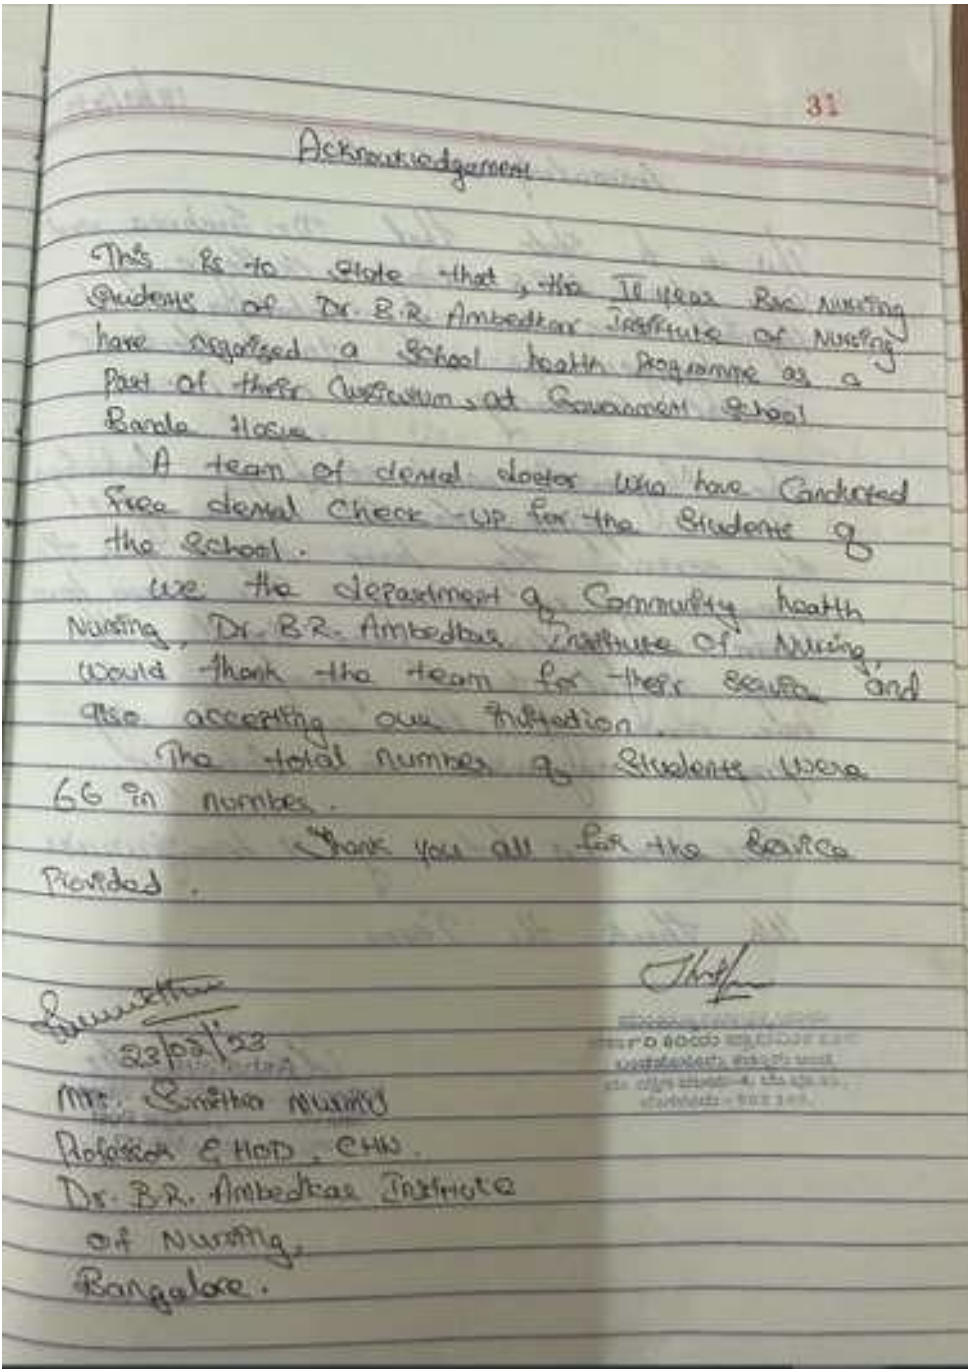 31
Acknowledgement
This is to state that, the II year Bsc Nursing
Students of Dr. B.R. Ambedkar Institute of Nursing
have orgaised a School health Programme as a
Part of their Curriculum, at Government School
Bande Hosur.
A team of dental doctor who have Conducted
Free dental Check-up for the Students of
the School.
we the department of Community health
Nursing, Dr. B.R. Ambedkar Institute of Nursing,
would thank the team for their Service and
also accepting our invitation.
The total number of Students were
66 in number.
Thank you all for the Service
Provided.
23/02/'23
Mrs. Sunitha
Professor & HOD, CHN.
Dr. B.R. Ambedkar Institute
of Nursing,
Bangalore.